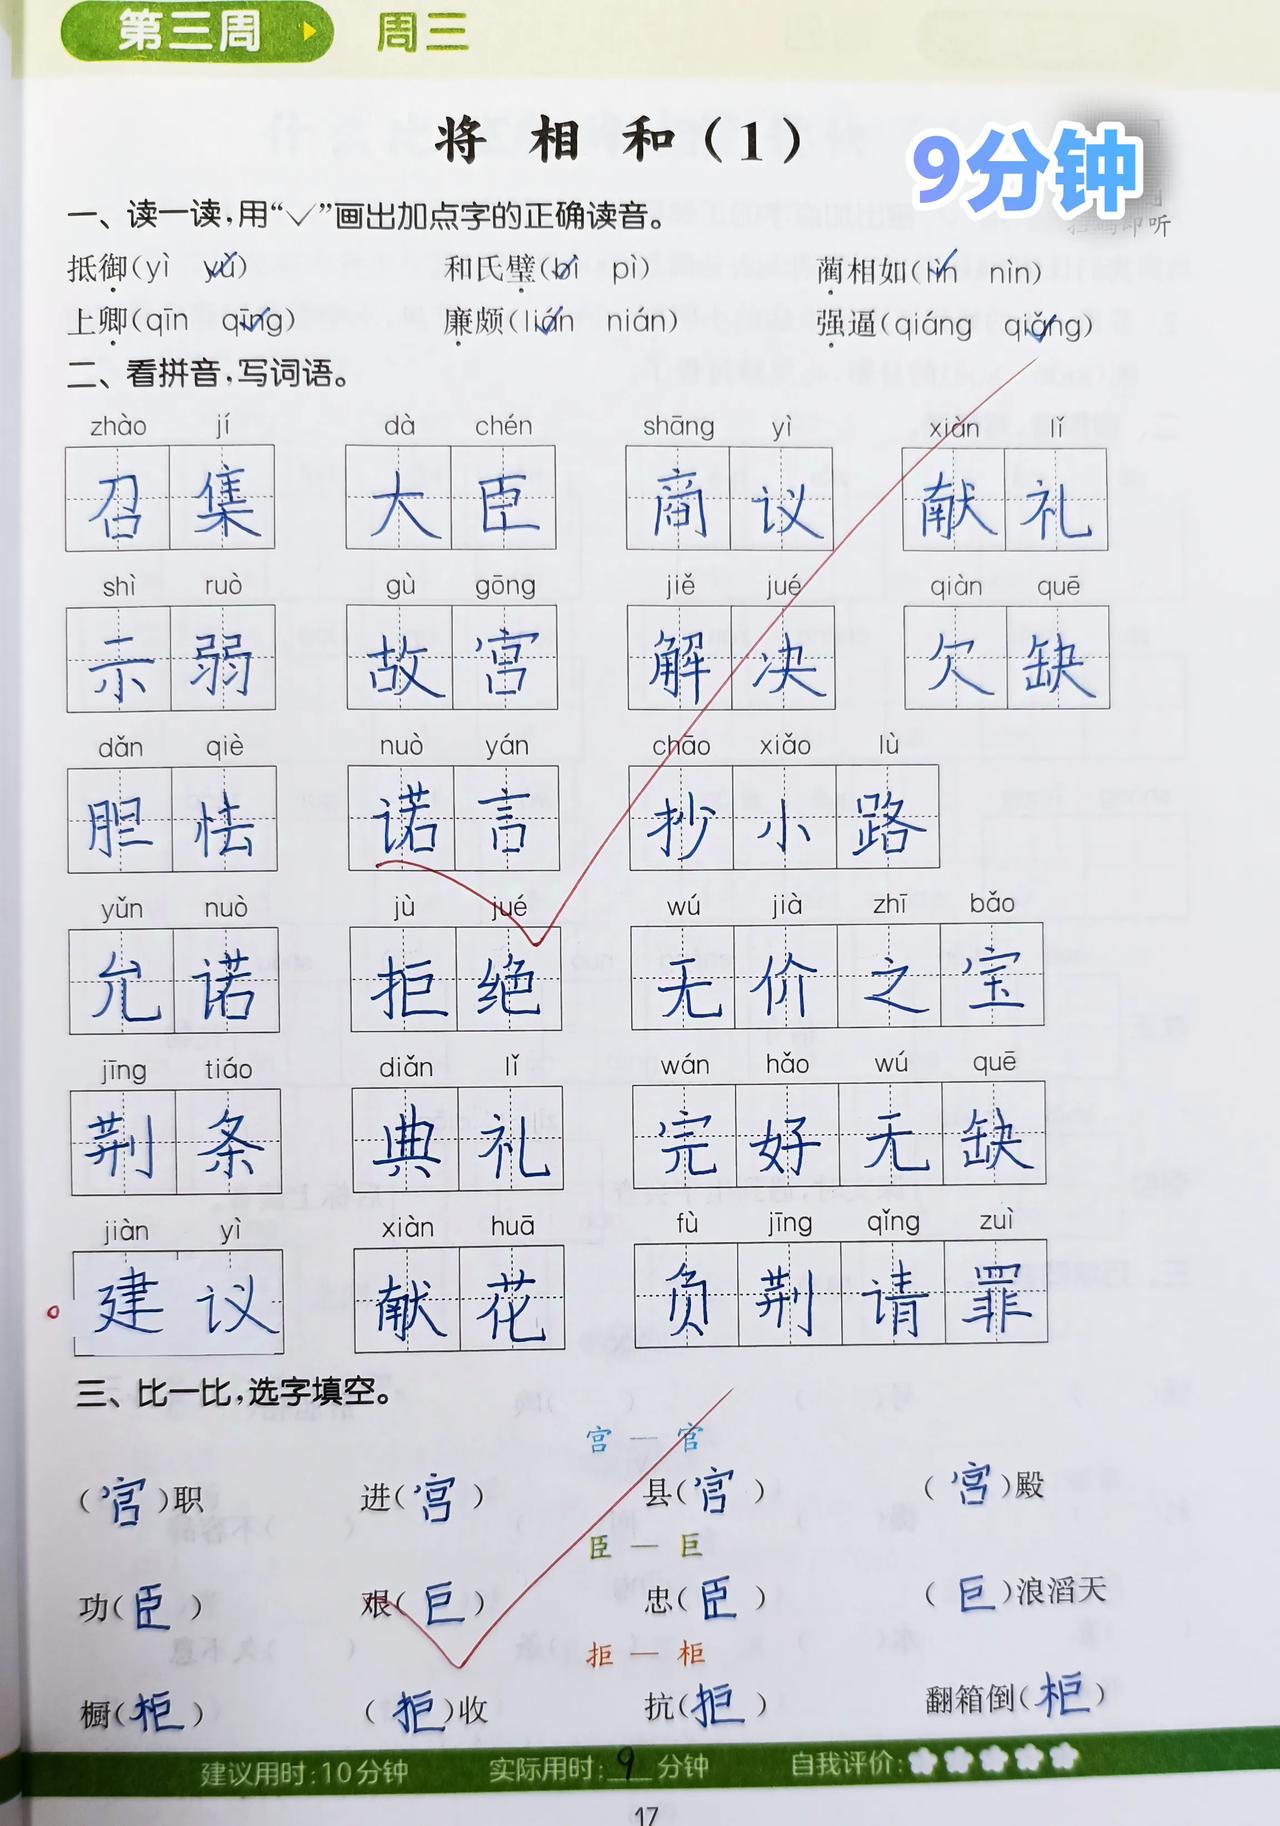 第三周 周三
将相和(1)
9分钟
扫码即听
一、读一读,用“✓”画出加点字的正确读音。
抵御(yì yù) 和氏璧(bì pì) 蔺相如(lìn nìn)
上卿(qīn qīng) 廉颇(lián nián) 强逼(qiáng qiǎng)
二、看拼音,写词语。
zhào jí dà chén shāng yì xiàn lǐ
召集 大臣 商议 献礼
shì ruò gù gōng jiě jué qiàn quē
示弱 故宫 解决 欠缺
dǎn qiè nuò yán chāo xiǎo lù
胆怯 诺言 抄小路
yǔn nuò jù jué wú jià zhī bǎo
允诺 拒绝 无价之宝
jīng tiáo diǎn lǐ wán hǎo wú quē
荆条 典礼 完好无缺
jiàn yì xiàn huā fù jīng qǐng zuì
建议 献花 负荆请罪
三、比一比,选字填空。
宫—官
(官)职 进(宫) 县(官) (宫)殿
臣—巨
功(臣) 艰(巨) 忠(臣) (巨)浪滔天
拒—柜
橱(柜) (拒)收 抗(拒) 翻箱倒(柜)
建议用时:10分钟 实际用时:9分钟 自我评价:
17